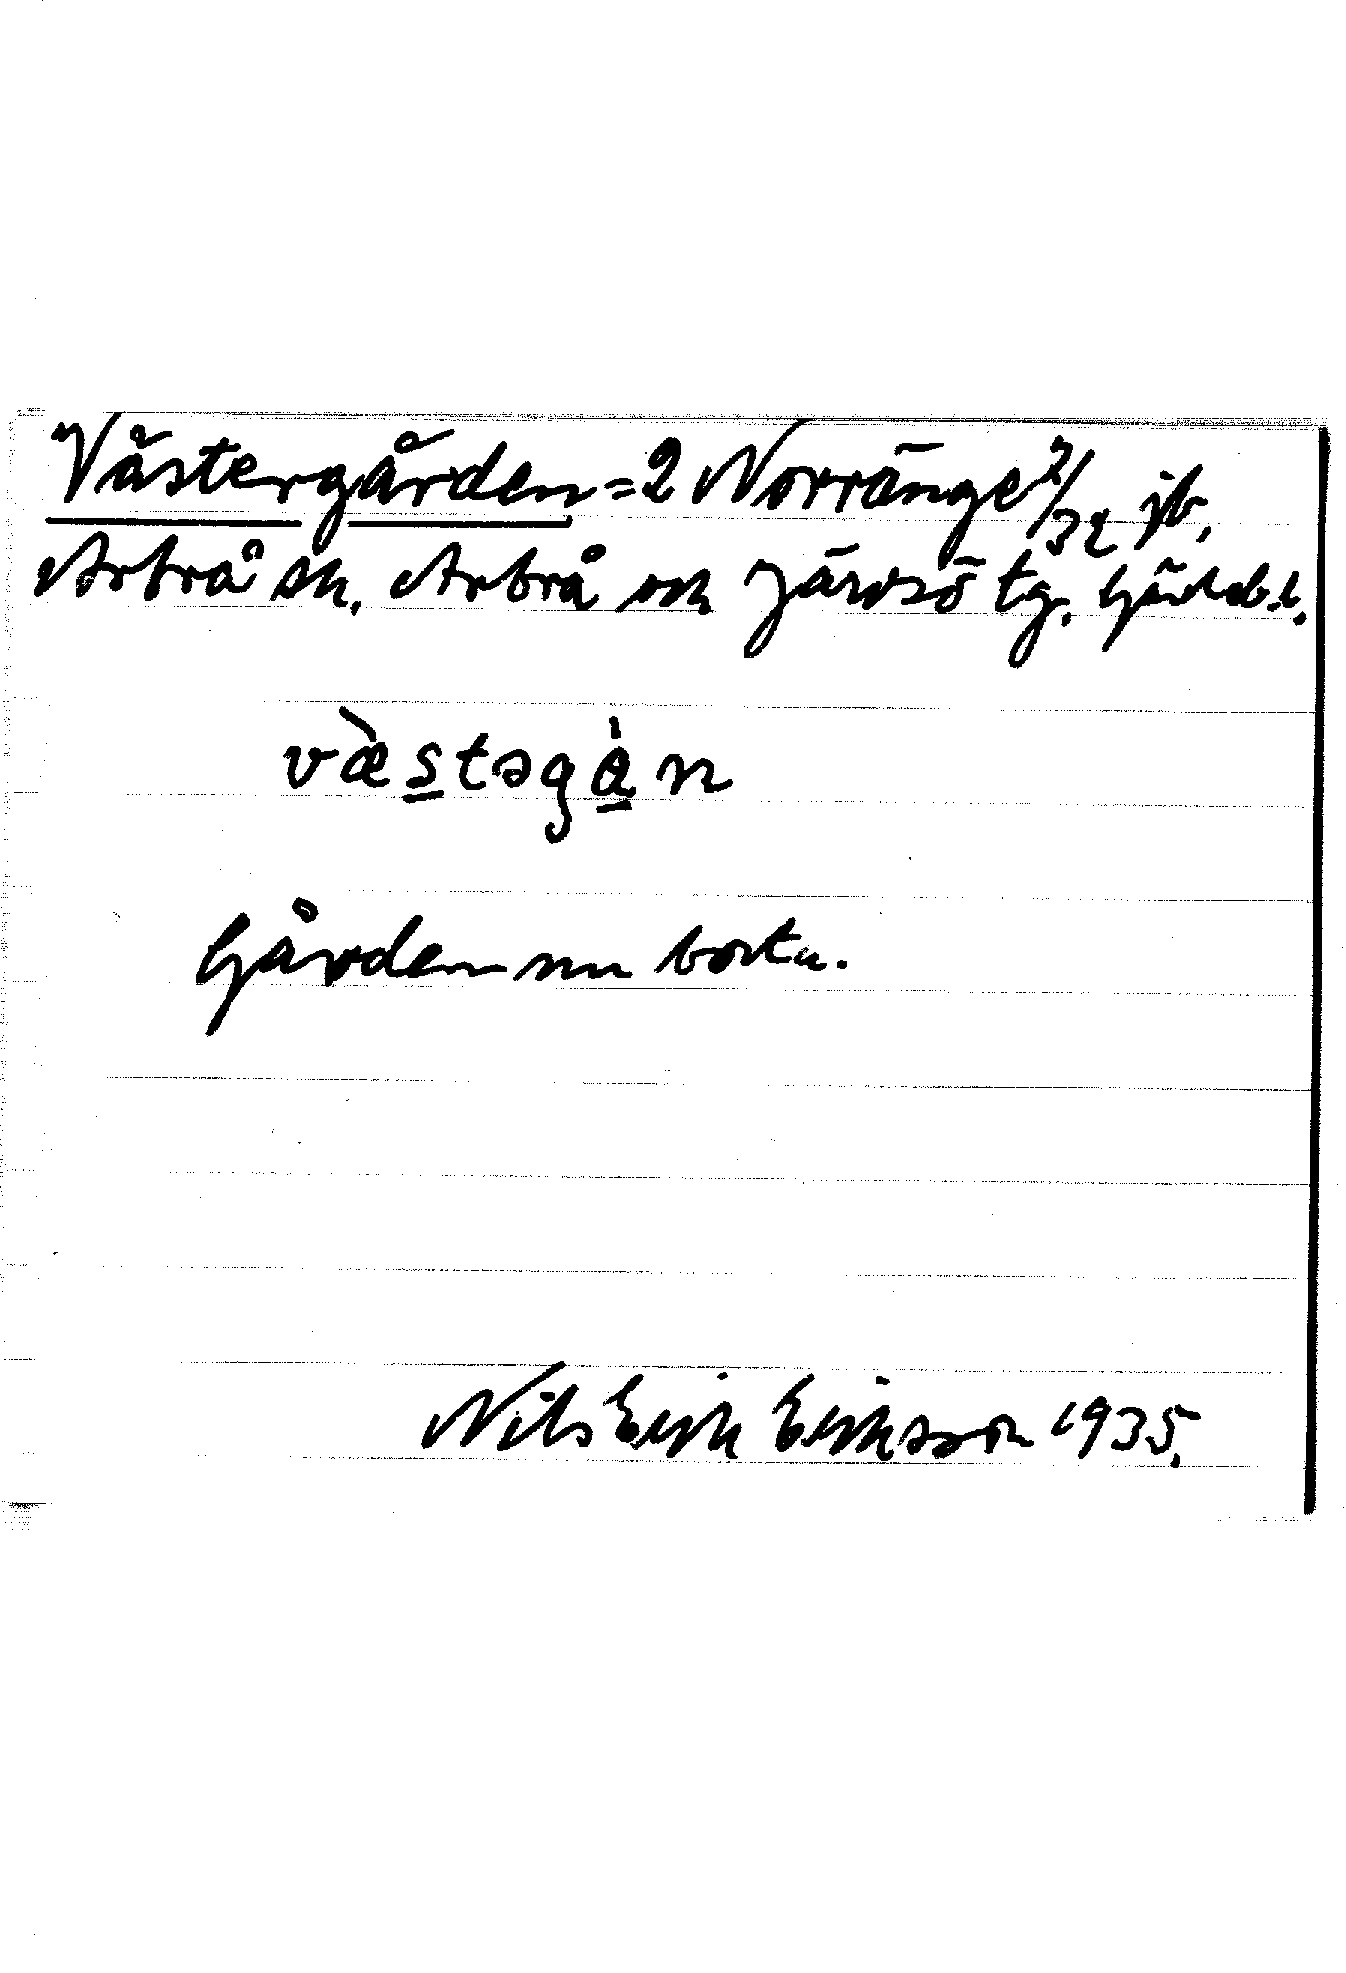 Västergården = 2 Norränge 2/32 jb,
Arbrå sn, Arbrå och Järvsö tg. Gävleb. l.
væ̀s̲təgà̲n
Gården nu borta.
Nils Erik Eriksson 1935.